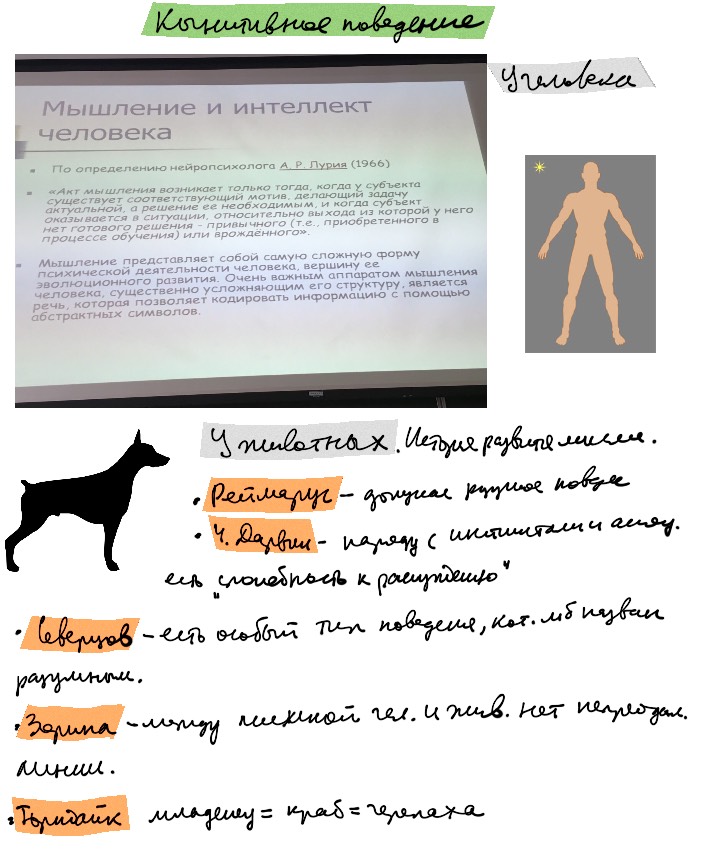 Когнитивное поведение
У человека
Мышление и интеллект
человека
По определению нейропсихолога А. Р. Лурия (1966)
«Акт мышления возникает только тогда, когда у субъекта
существует соответствующий мотив, делающий задачу
актуальной, а решение ее необходимым, и когда субъект
оказывается в ситуации, относительно выхода из которой у него
нет готового решения - привычного (т.е., приобретенного в
процессе обучения) или врождённого».
Мышление представляет собой самую сложную форму
психической деятельности человека, вершину ее
эволюционного развития. Очень важным аппаратом мышления
человека, существенно усложняющим его структуру, является
речь, которая позволяет кодировать информацию с помощью
абстрактных символов.
У животных. История развития
• Реймарус – разумное
• Ч. Дарвин – наряду с инстинктами и
есть "способность к рассуждению"
• Северцов – есть особый тип поведения, кот. мб назван
разумным.
• Зорина – между психикой чел. и жив. нет
линии.
• Торндайк младенец = краб = черепаха